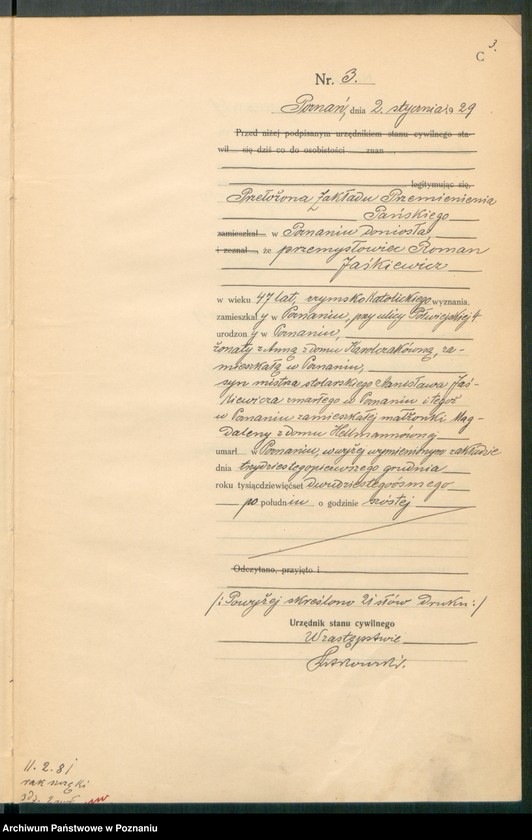 3.
C
Nr. 3.
Poznań, dnia 2. stycznia 1929
Przed niżej podpisanym urzędnikiem stanu cywilnego sta-
wił się dziś co do osobistości znan
legitymując się.
Przełożona Zakładu Przemienienia
Pańskiego
zamieszkał w Poznaniu doniosła,
i zeznał, że przemysłowiec Roman
Jaśkiewicz
w wieku 47 lat, rzymsko katolickiego wyznania,
zamieszkały w Poznaniu, przy ulicy Półwiejskiej 4
urodzony w Poznaniu,
żonaty z Anną z domu Karolczakówną, za-
mieszkałą w Poznaniu,
syn mistrza stolarskiego Stanisława Jaś-
kiewicza zmarłego w Poznaniu i tegoż
w Poznaniu zamieszkałej małżonki Mag-
daleny z domu Hellmannówny
umarł w Poznaniu, w wyżej wymienionym zakładzie
dnia trzydziestego pierwszego grudnia
roku tysiącdziewięćset dwudziestego ósmego
po południu o godzinie szóstej
Odczytano, przyjęto i
/: Powyżej skreślono 21 słów druku :/
Urzędnik stanu cywilnego
W zastępstwie
11. 2. 81
rak
Archiwum Państwowe w Poznaniu